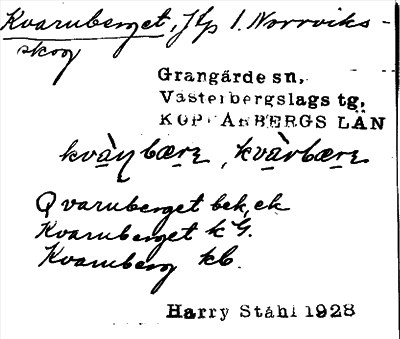 Kvarnberget, Jlp 1. Norrviks-
skog
Grangärde sn,
Västerbergslags tg,
KOPPARBERGS LÄN
kvàṇbærɛ, kvàrbærɛ
Qvarnberget bek, ek
Kvarnberget k G.
Kvarnberg kb.
Harry Ståhl 1928